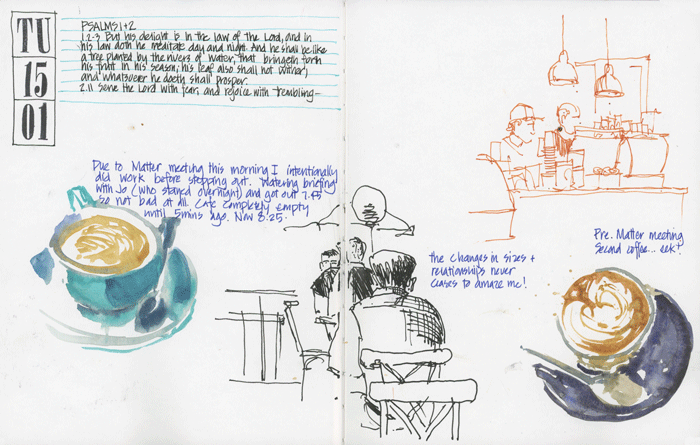 TU
15
01
PSALMS 1+2
1.2-3 But his delight is in the law of the Lord, and in
his law doth he meditate day and night. And he shall be like
a tree planted by the rivers of water, that bringeth forth
his fruit in his season; his leaf also shall not wither;
and whatsoever he doeth shall prosper.
2.11 Serve the Lord with fear, and rejoice with trembling—
Due to Matter meeting this morning I intentionally
did work before stopping out. Watering briefing
with Jo (who stayed overnight) and got out 7.45
so not bad at all. Cafe completely empty
until 5mins ago. Now 8.25.
the changes in sizes +
relationships never
ceases to amaze me!
Pre. Matter meeting
Second coffee... eek!